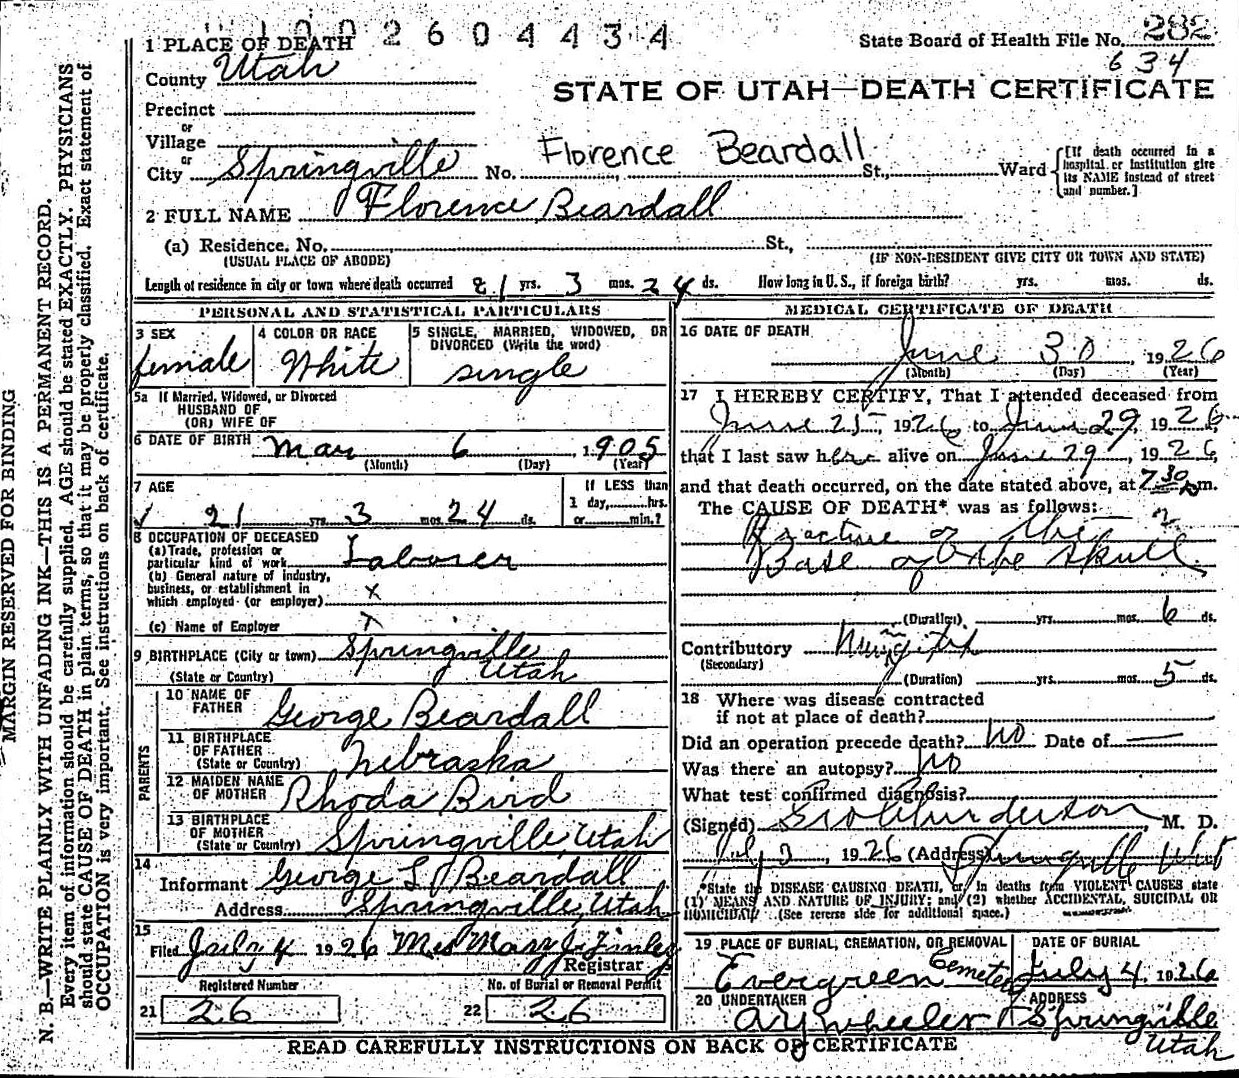 1002604434
State Board of Health File No. 282
634
1 PLACE OF DEATH
County Utah
STATE OF UTAH—DEATH CERTIFICATE
Precinct
or
Village
or
City Springville No. Florence Beardall St., Ward
[If death occurred in a hospital or institution give its NAME instead of street and number.]
2 FULL NAME Florence Beardall
(a) Residence. No. St.,
(USUAL PLACE OF ABODE) (IF NON-RESIDENT GIVE CITY OR TOWN AND STATE)
Length of residence in city or town where death occurred 21 yrs. 3 mos. 24 ds. How long in U. S., if foreign birth? yrs. mos. ds.
PERSONAL AND STATISTICAL PARTICULARS
3 SEX
female
4 COLOR OR RACE
White
5 SINGLE, MARRIED, WIDOWED, OR DIVORCED (Write the word)
single
5a If Married, Widowed, or Divorced
HUSBAND OF
(OR) WIFE OF
6 DATE OF BIRTH Mar 6, 1905
(Month) (Day) (Year)
7 AGE
21 yrs. 3 mos. 24 ds.
If LESS than
1 day, hrs.
or min.?
8 OCCUPATION OF DECEASED
(a) Trade, profession or
particular kind of work Laborer
(b) General nature of industry,
business, or establishment in
which employed (or employer) x
(c) Name of Employer
9 BIRTHPLACE (City or town) Springville
(State or Country) Utah
PARENTS
10 NAME OF
FATHER George Beardall
11 BIRTHPLACE
OF FATHER
(State or Country) Nebraska
12 MAIDEN NAME
OF MOTHER Rhoda Bird
13 BIRTHPLACE
OF MOTHER
(State or Country) Springville, Utah
14
Informant George L Beardall
Address Springville, Utah
15
Filed July 4 1926 Mrs Mary J. Finley
Registrar
Registered Number
21 26
No. of Burial or Removal Permit
22 26
MEDICAL CERTIFICATE OF DEATH
16 DATE OF DEATH
June 30, 1926
(Month) (Day) (Year)
17 I HEREBY CERTIFY, That I attended deceased from
June 25, 1926 to June 29, 1926,
that I last saw her alive on June 29, 1926,
and that death occurred, on the date stated above, at 7:30 m.
The CAUSE OF DEATH* was as follows:
Fracture of the
Base of the Skull
(Duration) yrs. mos. 6 ds.
Contributory
(Secondary)
(Duration) yrs. mos. 5 ds.
18 Where was disease contracted
if not at place of death?
Did an operation precede death? No Date of —
Was there an autopsy? No
What test confirmed diagnosis?
(Signed) M. D.
July 3, 1926 (Address) Springville Utah
*State the DISEASE CAUSING DEATH, or, in deaths from VIOLENT CAUSES state
(1) MEANS AND NATURE OF INJURY; and (2) whether ACCIDENTAL, SUICIDAL OR
HOMICIDAL. (See reverse side for additional space.)
19 PLACE OF BURIAL, CREMATION, OR REMOVAL
Evergreen Cemetery
DATE OF BURIAL
July 4, 1926
20 UNDERTAKER
A Y Wheeler
ADDRESS
Springville
Utah
READ CAREFULLY INSTRUCTIONS ON BACK OF CERTIFICATE
MARGIN RESERVED FOR BINDING
N. B.—WRITE PLAINLY WITH UNFADING INK—THIS IS A PERMANENT RECORD.
Every item of information should be carefully supplied. AGE should be stated EXACTLY. PHYSICIANS
should state CAUSE OF DEATH in plain terms, so that it may be properly classified. Exact statement of
OCCUPATION is very important. See instructions on back of certificate.